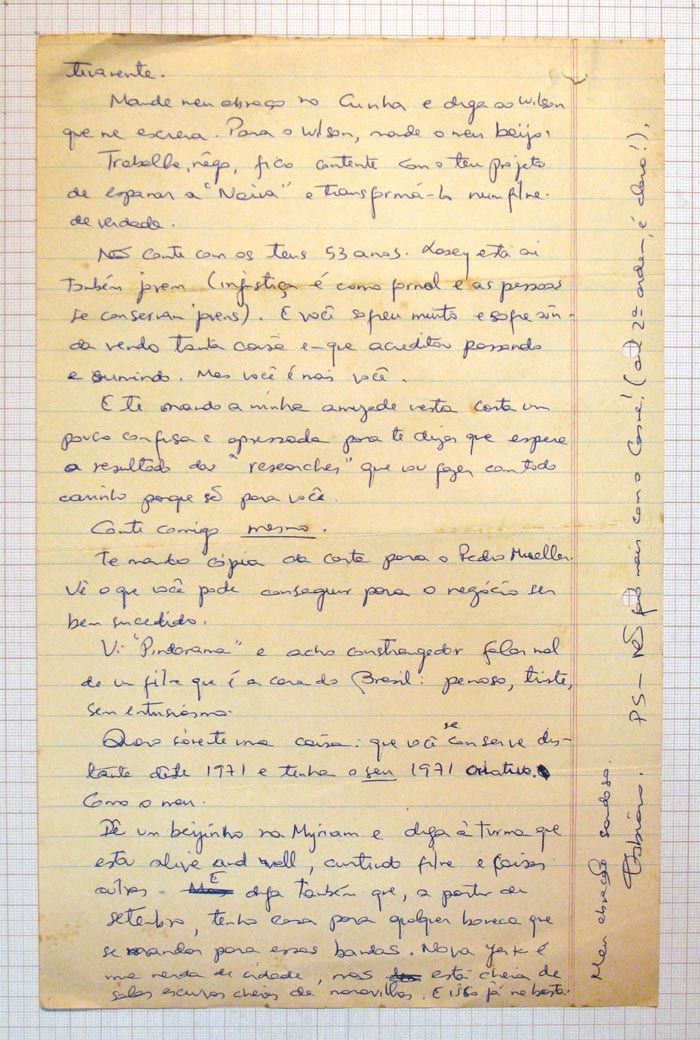 tivamente.
Mande meu abraço no Cunha e diga ao Wilson
que me escreva. Para o Wilson, mande o meu beijo.
Trabalhe, nêgo, fico contente com o teu projeto
de espanar a "Noiva" e transformá-la num filme
de verdade.
Não conte com os teus 53 anos. Losey está aí
também jovem (injustiça é como jornal e as pessoas
se conservam jovens). E você sofreu muito e sofre ain-
da vendo tanta coisa em que acreditou passando
e sumindo. Mas você é mais você.
E te mando a minha amizade nesta carta um
pouco confusa e apressada para te dizer que espere
o resultado das "researches" que vou fazer com todo
carinho porque só para você.
Conte comigo mesmo.
Te mando cópia da carta para o Pedro Mueller.
Vê o que você pode conseguir para o negócio ser
bem sucedido.
Vi "Pindorama" e acho constrangedor falar mal
de um filme que é a cara do Brasil: penoso, triste,
sem entusiasmo.
Quero somente uma coisa: que você se conserve dis-
tante deste 1971 e tenha o seu 1971 criativo.
Como o meu.
Dê um beijinho na Myriam e diga à turma que
estou alive and well, curtindo filme e coisas
outras. E diga também que, a partir de
setembro, tenho casa para qualquer boneca que
se mandar para essas bandas. Nova York é
uma merda de cidade, mas está cheia de
salas escuras cheias de maravilhas. E isso já me basta.
Meu abração saudoso.
Fabiano. PS — Não fale mais com o Cosme! (até 2ª ordem, é claro!).